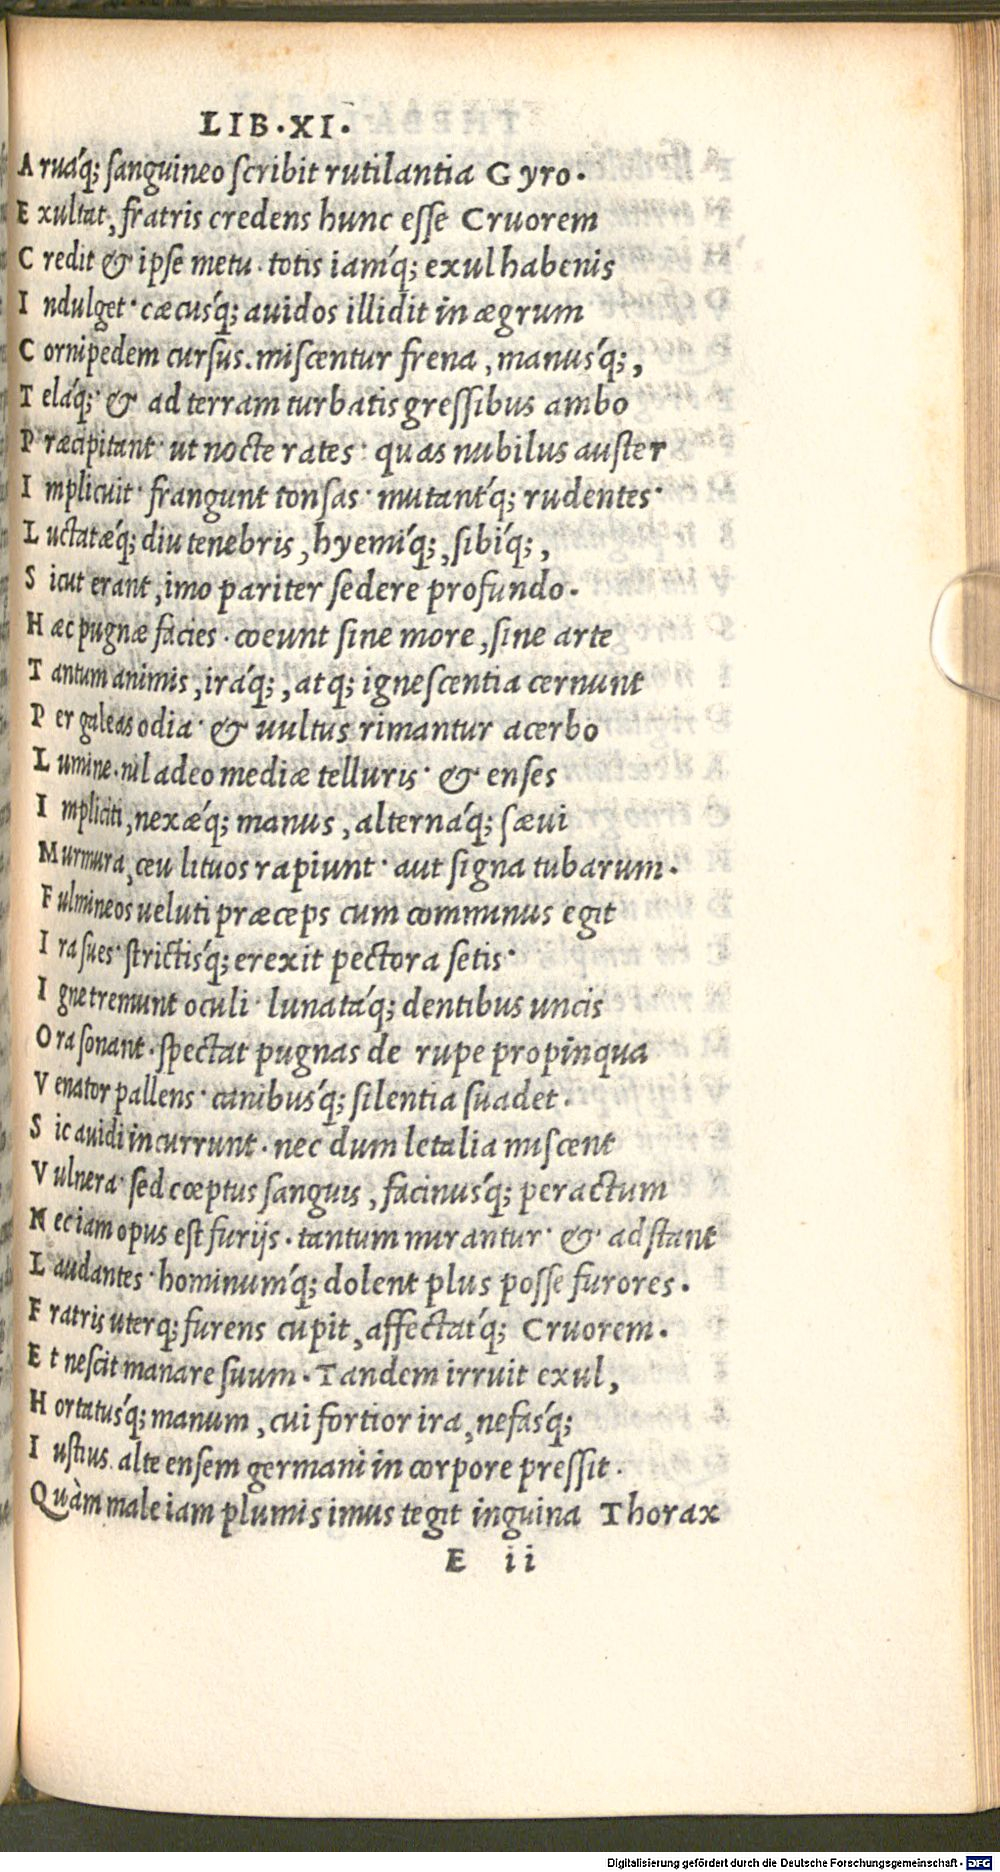 LIB·XI·
A ruáq; ſanguineo ſcribit rutilantia Gyro.
E xultat, fratris credens hunc eſſe Cruorem
C redit & ipſe metu· totis iamq́; exul habenis
I ndulget· cæcusq́; auidos illidit in ægrum
C ornipedem curſus. miſcentur frena, manusq́;,
T eláq;· & ad terram turbatis greſſibus ambo
P ræcipitant· ut nocte rates· quas nubilus auſter
I mplicuit· frangunt tonſas· mutantq́; rudentes·
L uctatæq́; diu tenebris, hyemíq;, ſibíq;,
S icut erant, imo pariter ſedere profundo.
H æc pugnæ facies· coeunt ſine more, ſine arte
T antum animis, iráq;, atq; igneſcentia cernunt
P er galeas odia· & uultus rimantur acerbo
L umine. nil adeo mediæ telluris· & enſes
I mpliciti, nexæq́; manus, alternáq; ſæui
M urmura, ceu lituos rapiunt· aut ſigna tubarum.
F ulmineos ueluti præceps cum comminus egit
I ra ſues· ſtrictisq́; erexit pectora ſetis·
I gne tremunt oculi· lunatáq; dentibus uncis
O ra ſonant. ſpectat pugnas de rupe propinqua
V enator pallens· canibusq́; ſilentia ſuadet.
S ic auidi incurrunt. nec dum letalia miſcent
V ulnera· ſed cœptus ſanguis, facinusq́; peractum
N ec iam opus eſt furijs. tantum mirantur· & adſtant
L audantes· hominumq́; dolent plus poſſe furores.
F ratris uterq; furens cupit, affectatq́; Cruorem.
E t neſcit manare ſuum. Tandem irruit exul,
H ortatusq́; manum, cui fortior ira, nefasq́;
I uſtius. alte enſem germani in corpore preſſit.
Quàm male iam plumis imus tegit inguina Thorax
E ii
Digitalisierung gefördert durch die Deutsche Forschungsgemeinschaft - DFG